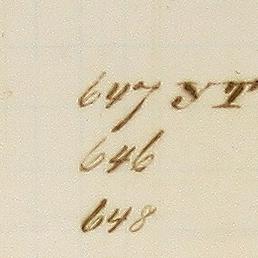 647 Y T
646
648